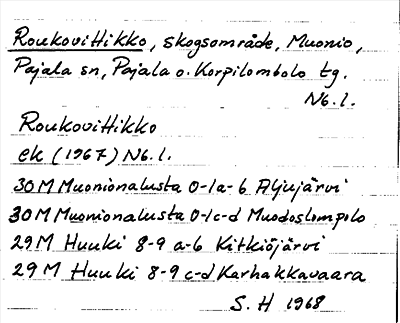 Roukovittikko, skogsområde, Muonio,
Pajala sn, Pajala o. Korpilombolo tg.
Nb. l.
Roukovittikko
ek (1967) Nb. l.
30 M Muonionalusta 0-1 a-b Äijujärvi
30 M Muonionalusta 0-1 c-d Muodoslompolo
29 M Huuki 8-9 a-b Kitkiöjärvi
29 M Huuki 8-9 c-d Karhakkavaara
S. H 1968